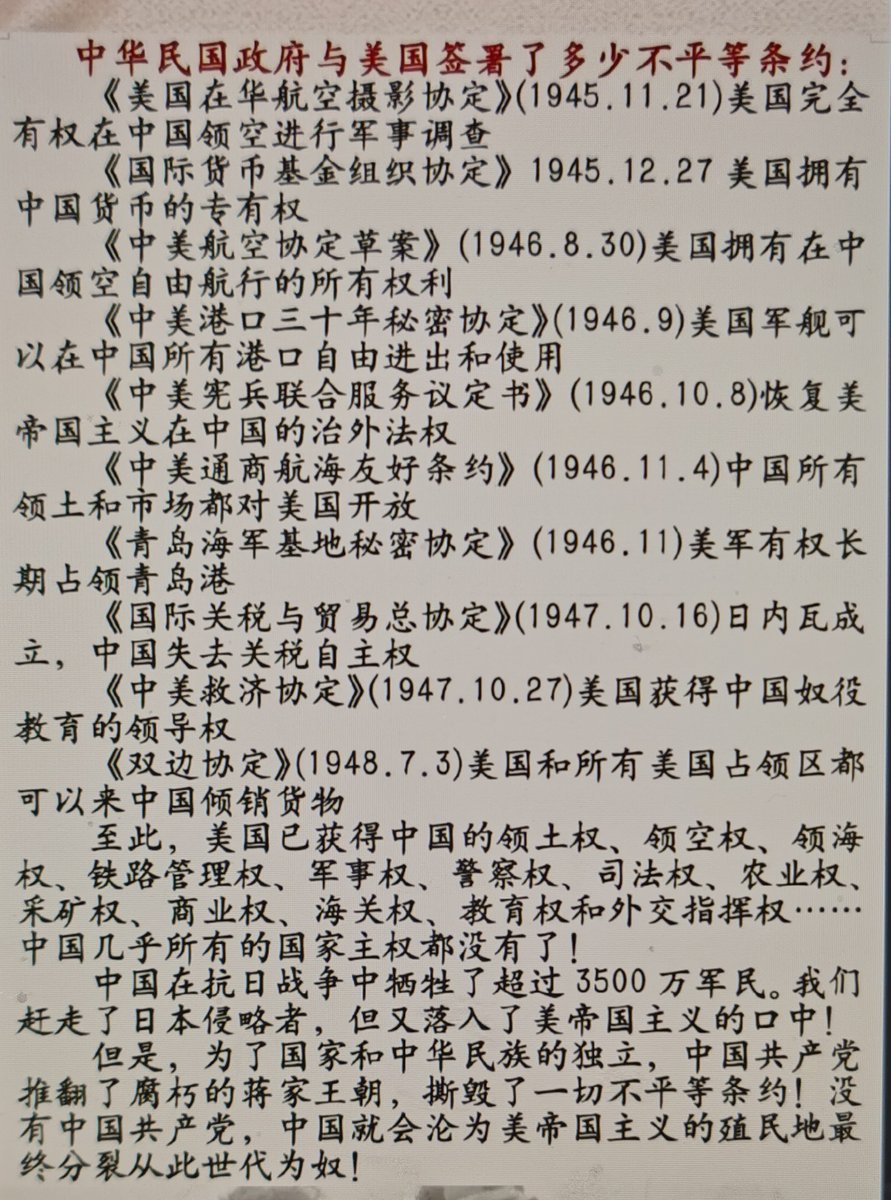 中华民国政府与美国签署了多少不平等条约：
《美国在华航空摄影协定》(1945.11.21)美国完全
有权在中国领空进行军事调查
《国际货币基金组织协定》1945.12.27 美国拥有
中国货币的专有权
《中美航空协定草案》(1946.8.30)美国拥有在中
国领空自由航行的所有权利
《中美港口三十年秘密协定》(1946.9)美国军舰可
以在中国所有港口自由进出和使用
《中美宪兵联合服务议定书》(1946.10.8)恢复美
帝国主义在中国的治外法权
《中美通商航海友好条约》(1946.11.4)中国所有
领土和市场都对美国开放
《青岛海军基地秘密协定》(1946.11)美军有权长
期占领青岛港
《国际关税与贸易总协定》(1947.10.16)日内瓦成
立，中国失去关税自主权
《中美救济协定》(1947.10.27)美国获得中国奴役
教育的领导权
《双边协定》(1948.7.3)美国和所有美国占领区都
可以来中国倾销货物
至此，美国已获得中国的领土权、领空权、领海
权、铁路管理权、军事权、警察权、司法权、农业权、
采矿权、商业权、海关权、教育权和外交指挥权……
中国几乎所有的国家主权都没有了！
中国在抗日战争中牺牲了超过 3500 万军民。我们
赶走了日本侵略者，但又落入了美帝国主义的口中！
但是，为了国家和中华民族的独立，中国共产党
推翻了腐朽的蒋家王朝，撕毁了一切不平等条约！没
有中国共产党，中国就会沦为美帝国主义的殖民地最
终分裂从此世代为奴！